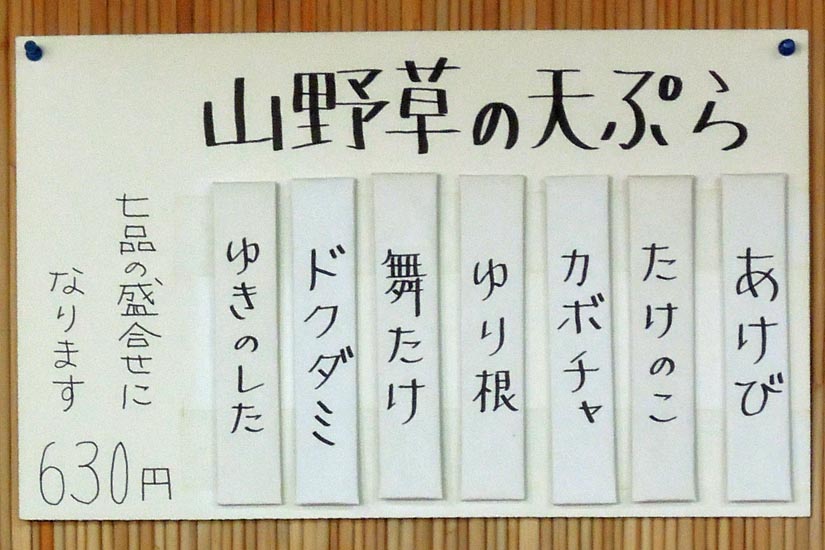 山野草の天ぷら
あけび
たけのこ
カボチャ
ゆり根
舞たけ
ドクダミ
ゆきのした
七品の盛合せに
なります
630円